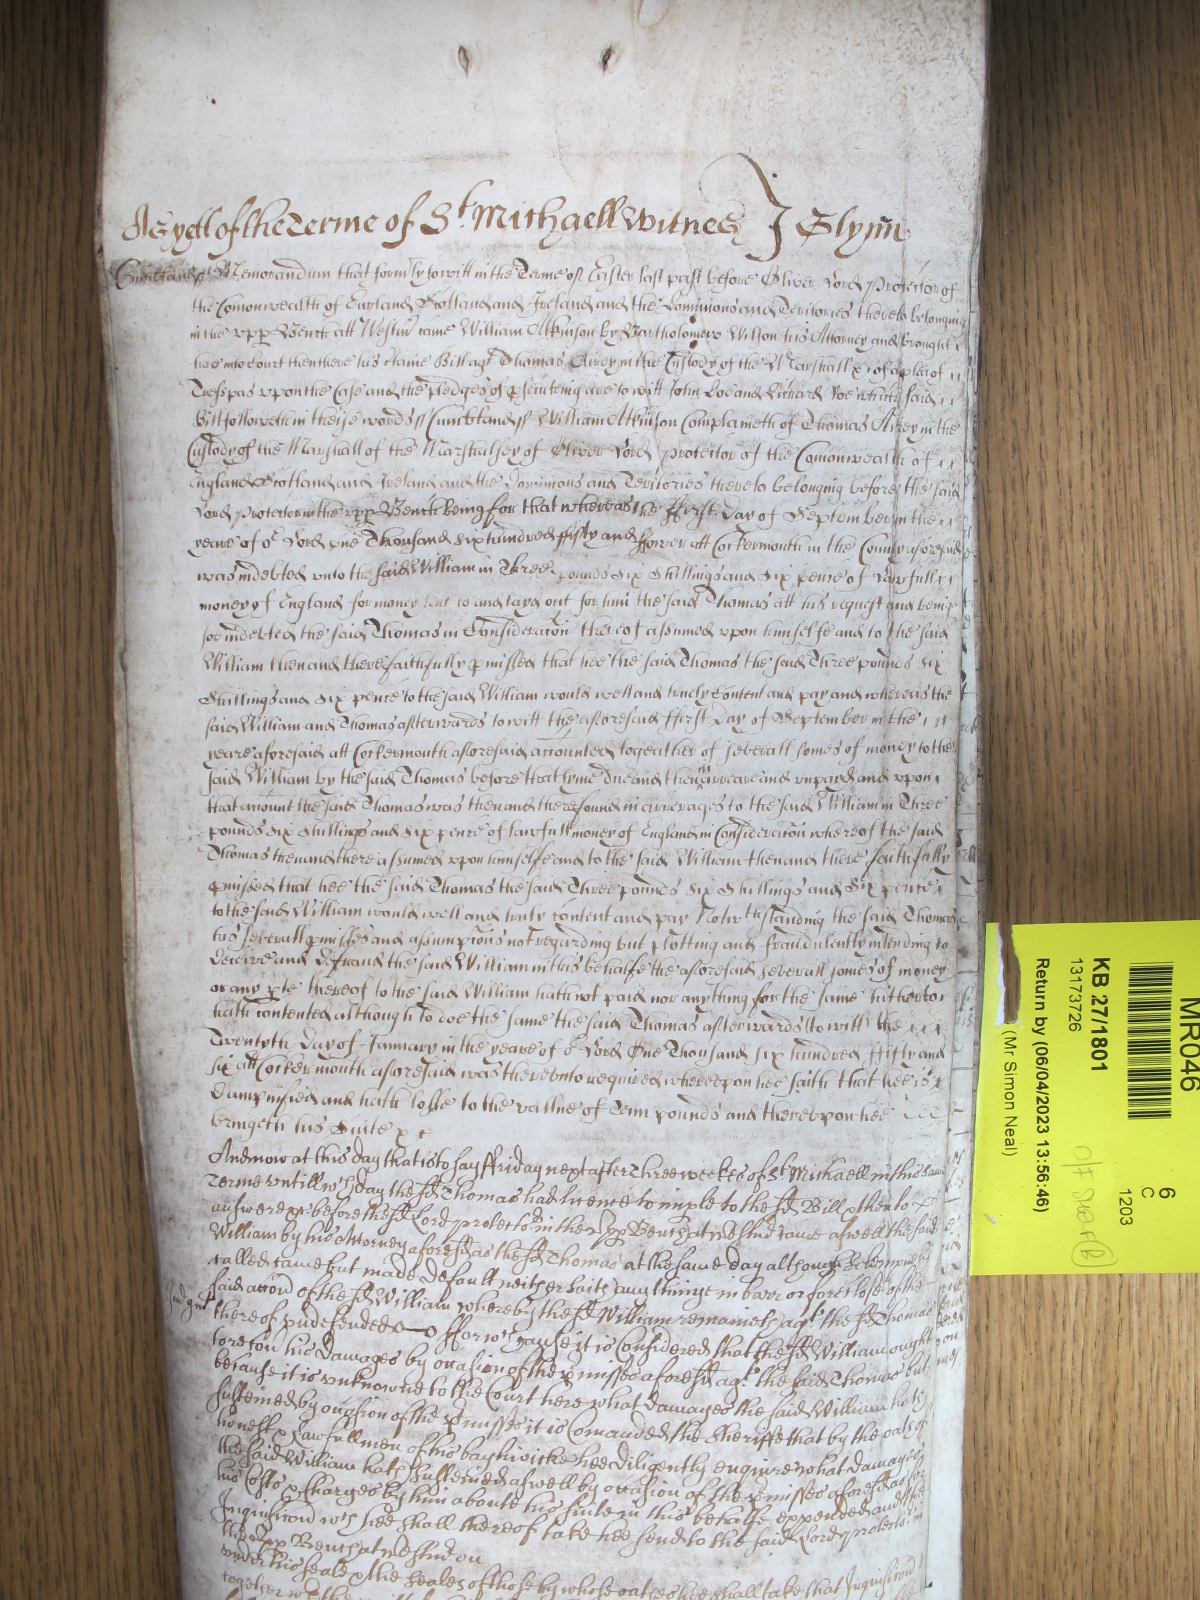 As yett of the Terme of St Michaell Witnes J Glynn
Cumbland ss Memorandum that formly to witt in the Terme of Easter last past before Oliver Lord Protector of
the Comonwealth of England Scotland and Ireland and the Dominions and Territories thereto belonging
in the vpp Bench att Westm came William Atkinson by Bartholomew Wilson his Attorney and brought
here into Court then there his certaine Bill agt Thomas Airey in the Custody of the Marshall &c of a plea of
Trespas vpon the Case and the pledges of psecuteing are to witt John Doe and Richard Roe which said
Bill followeth in theise words ss Cumbland ss William Atkinson Complaineth of Thomas Airey in the
Custody of the Marshall of the Marshalsey of Oliver Lord Protector of the Comonwealth of
England Scotland and Ireland and the Dominions and Territories thereto belonging before the said
Lord Protector in the vpp Bench being for that whereas the ffirst day of September in the
yeare of or Lord one Thousand six hundred fifty and ffower att Cockermouth in the County aforesaid
was indebted vnto the said William in Three pounds six shillings and six pence of lawfull
money of England for money lent to and layd out for him the said Thomas att his request and being
soe indebted the said Thomas in Consideracon thereof assumed vpon himselfe and to the said
William then and there faithfully pmissed that hee the said Thomas the said Three pounds six
shillings and six pence to the said William would well and truely Content and pay and whereas the
said William and Thomas afterwards to witt the aforesaid ffirst day of September in the
yeare aforesaid att Cockermouth aforesaid accounted togeather of severall somes of money to the
said William by the said Thomas before that tyme due and then in arreare and vnpayd and vpon
that accompt the said Thomas was then and there found in arrerages to the said William in Three
pounds six shillings and six pence of lawfull money of England in Consideracon whereof the said
Thomas then and there assumed vpon himselfe and to the said William then and there faithfully
pmissed that hee the said Thomas the said Three pounds six shillings and six pence
to the said William would well and truly content and pay Notwthstanding the said Thomas
his severall pmisses and assumpcons not regarding but plotting and fraudulently intending to
deceive and defraud the said William in this behalfe the aforesaid severall somes of money
or any pte thereof to the said William hath not paid nor anything for the same hitherto
hath contented although to doe the same the said Thomas afterwards to witt the
Twentyth day of January in the yeare of or Lord One Thousand six hundred ffifty and
six att Cockermouth aforesaid was therevnto required wherevpon hee saith that hee is
dampnified and hath losse to the vallue of Tenn pounds and therevpon hee
bringeth his Suite &c
And now at this day that is to say ffriday next after Three weekes of St Michaell in this same
Terme vntill wch day the sd Thomas had licence to imple to the sd Bill & then to
answere &c before the sd Lord protector in the vpp Bench at Westmd came aswell the said
William by his Attorney aforesd as the sd Thomas at the same day although solempnely
called came but made default neither saith anythinge in barr or foreclose of the
said accon of the sd William whereby the sd William remaineth agt the sd Thomas
Judgmt thereof vndefended ffor wch cause it is Considered that the sd William ought
to recou his damages by occasion of the pmisses aforesd agt the said Thomas but
because it is vnknowne to the Court here what damages the said William hath
susteined by occasion of the pmisses it is Comanded the Sheriffe that by the oath of
honest & lawfull men of his baylwicke hee diligently enquire what damages
the said William hath susteined aswell by occasion of the pmisses aforesd as for
his Costs & Charges by him aboute his suite in this behalfe expended and the
Inquisicon wch hee shall thereof take hee send to the said Lord protector in
the vpp Bench at Westmd on
vnder his seale & the seales of those by whose oathes hee shall take that Inquisicon
together wth
MR046
6
C
1203
KB 27/1801
13173726
Return by (06/04/2023 13:56:46)
(Mr Simon Neal)